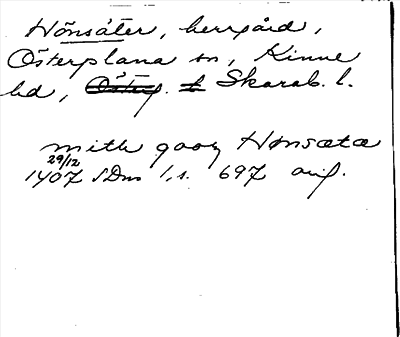 Hönsäter, herrgård,
Österplana sn, Kinne
hd, Österg. L Skarab. l.
mith gooz Hønsæta
29/12
1407 SDns 1, s. 697 orig.